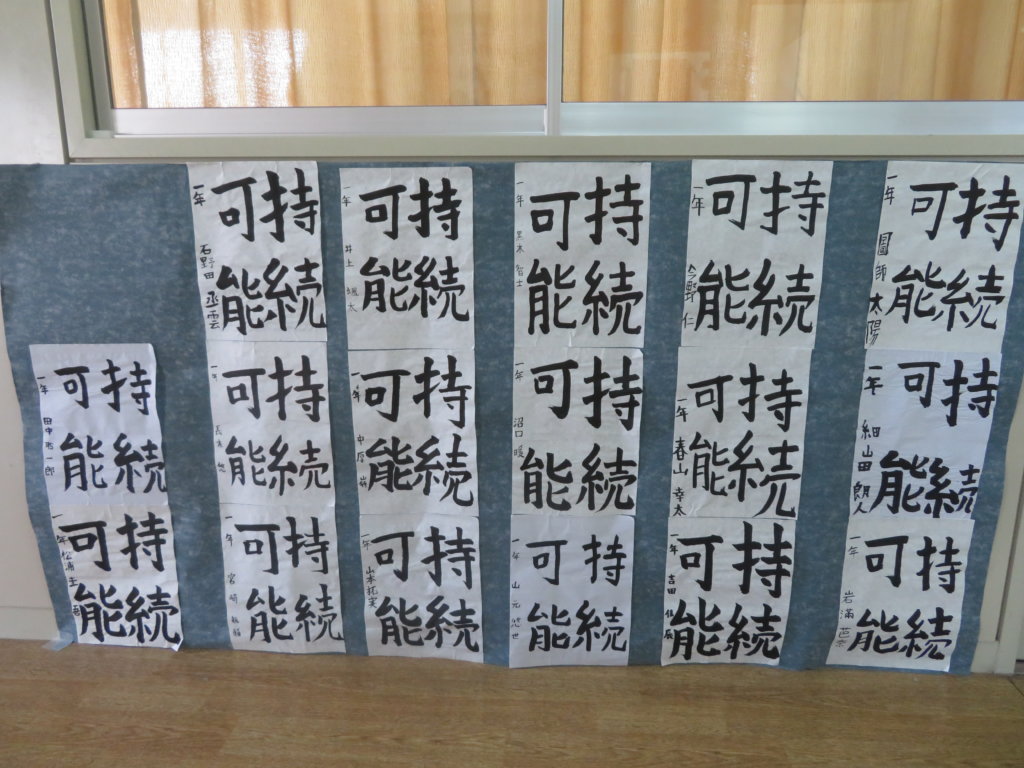 持続
可能
一年 圓師 太陽
持続
可能
一年 細山田 朗人
持続
可能
一年 岩満
持続
可能
一年 今野 仁
持続
可能
一年 春山 幸太
持続
可能
一年 吉田
持続
可能
一年 黒木 智士
持続
可能
一年 沼口 暖
持続
可能
一年 山元 悠世
持続
可能
一年 井上 颯太
持続
可能
一年 中原
持続
可能
一年 山本 拓実
持続
可能
一年 石野田 丞雲
持続
可能
一年
持続
可能
一年 宮崎
持続
可能
一年 田中
持続
可能
一年 松浦